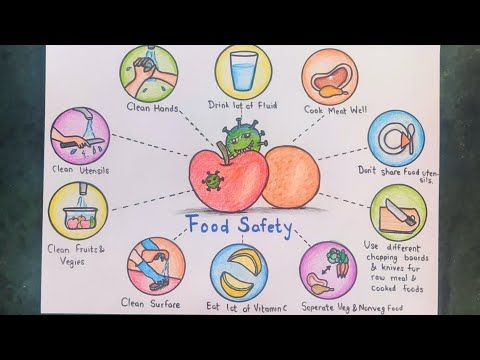 Clean Hands
Drink lot of Fluid
Cook Meat Well
Clean Utensils
Don't share Food uten-
sils.
Clean Fruits &
Vegies
Food Safety
Use different
chopping boards
& knives for
raw meal &
cooked foods
Clean Surfore
Eat lot of Vitamin C
Saperate Veg & Nonveg Food